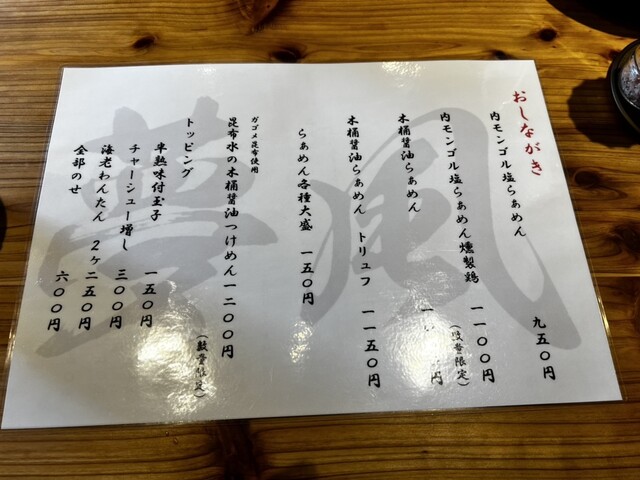 おしながき
内モンゴル塩らぁめん 九五〇円
内モンゴル塩らぁめん燻製鶏 一一〇〇円
(数量限定)
木桶醤油らぁめん 円
木桶醤油らぁめん トリュフ 一一五〇円
らぁめん各種大盛 一五〇円
ガゴメ昆布使用
昆布水の木桶醤油つけめん 一二〇〇円
(数量限定)
トッピング
半熟味付玉子 一五〇円
チャーシュー増し 三〇〇円
海老わんたん 2ヶ 二五〇円
全部のせ 六〇〇円
風
夢